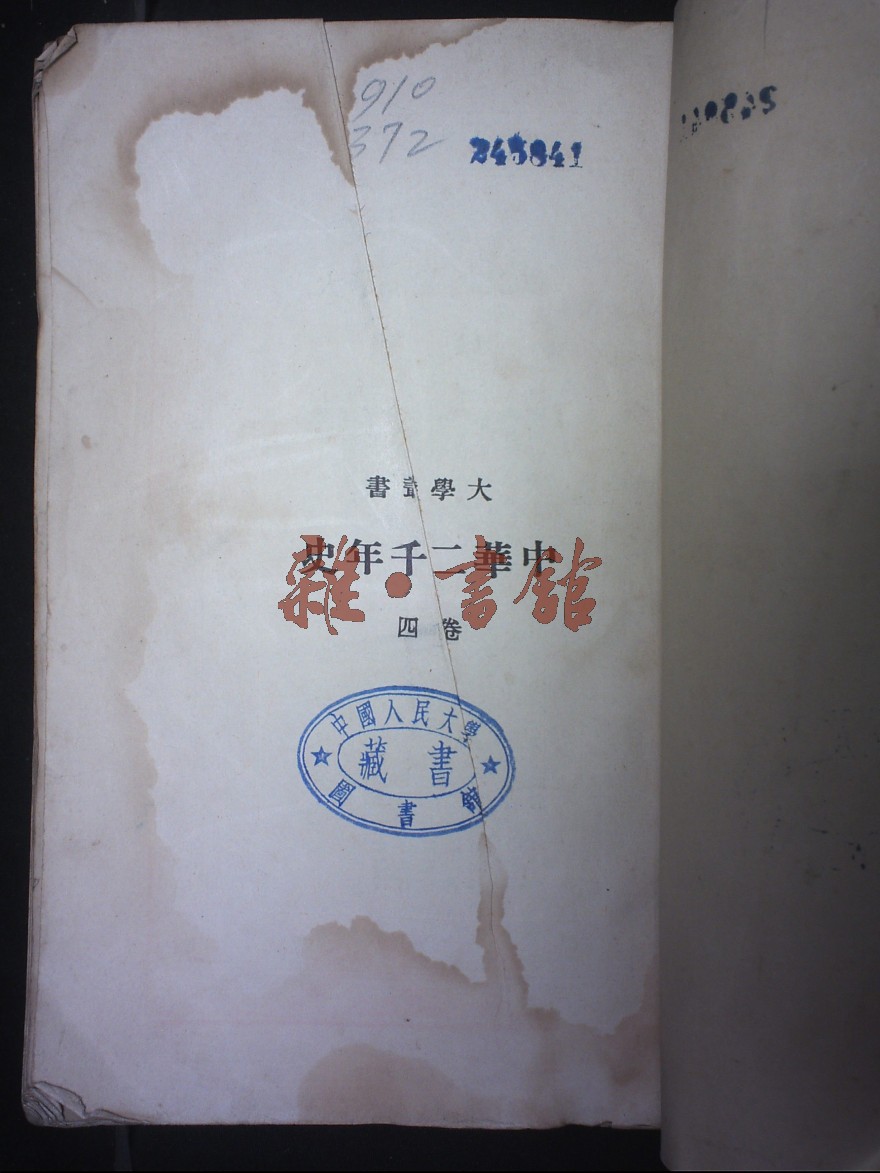 910
372
245841
大學叢書
中華二千年史
雜·書館
卷四
中國人民大學
藏書
圖書館